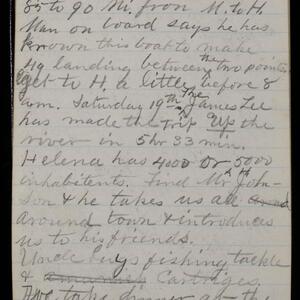 85 to 90 Mi. from M. to H.
Man on board says he has
known this boat to make
49 landing between the two points.
get to H a little before 8
am. Saturday 19th The James Lee
has made the trip Up the
river in 5 hr 33 min.
Helena has 4000 or 5000
inhabitents. Find Mr John-
son & he takes us all
around town & introduces
us to his friends.
Uncle buys fishing tackle
& Cartriges
take dinner at the